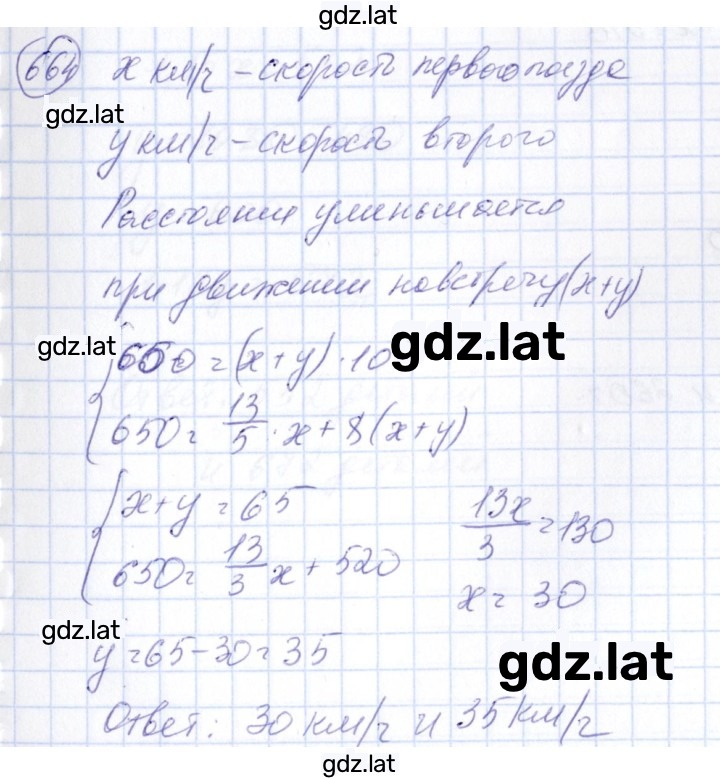 gdz.lat
664 x км/ч – скорость первого поезда
gdz.lat
y км/ч – скорость второго
Расстояние уменьшается
при движении навстречу (x+y)
gdz.lat
650 = (x+y) · 10
gdz.lat
650 = 13/5 · x + 8(x+y)
x+y = 65
13x/3 = 130
650 = 13/3 x + 520
x = 30
gdz.lat
y = 65 - 30 = 35
gdz.lat
Ответ: 30 км/ч и 35 км/ч
gdz.lat